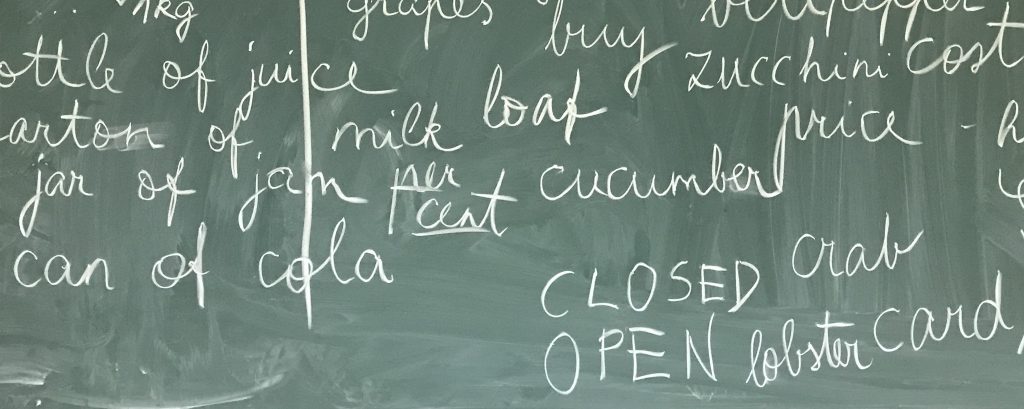 1kg
grapes
buy
zucchini
cost
ottle of juice
loaf
price -
arton of milk
jar of jam
per
cent
cucumber
can of cola
crab
CLOSED
OPEN
lobster
card